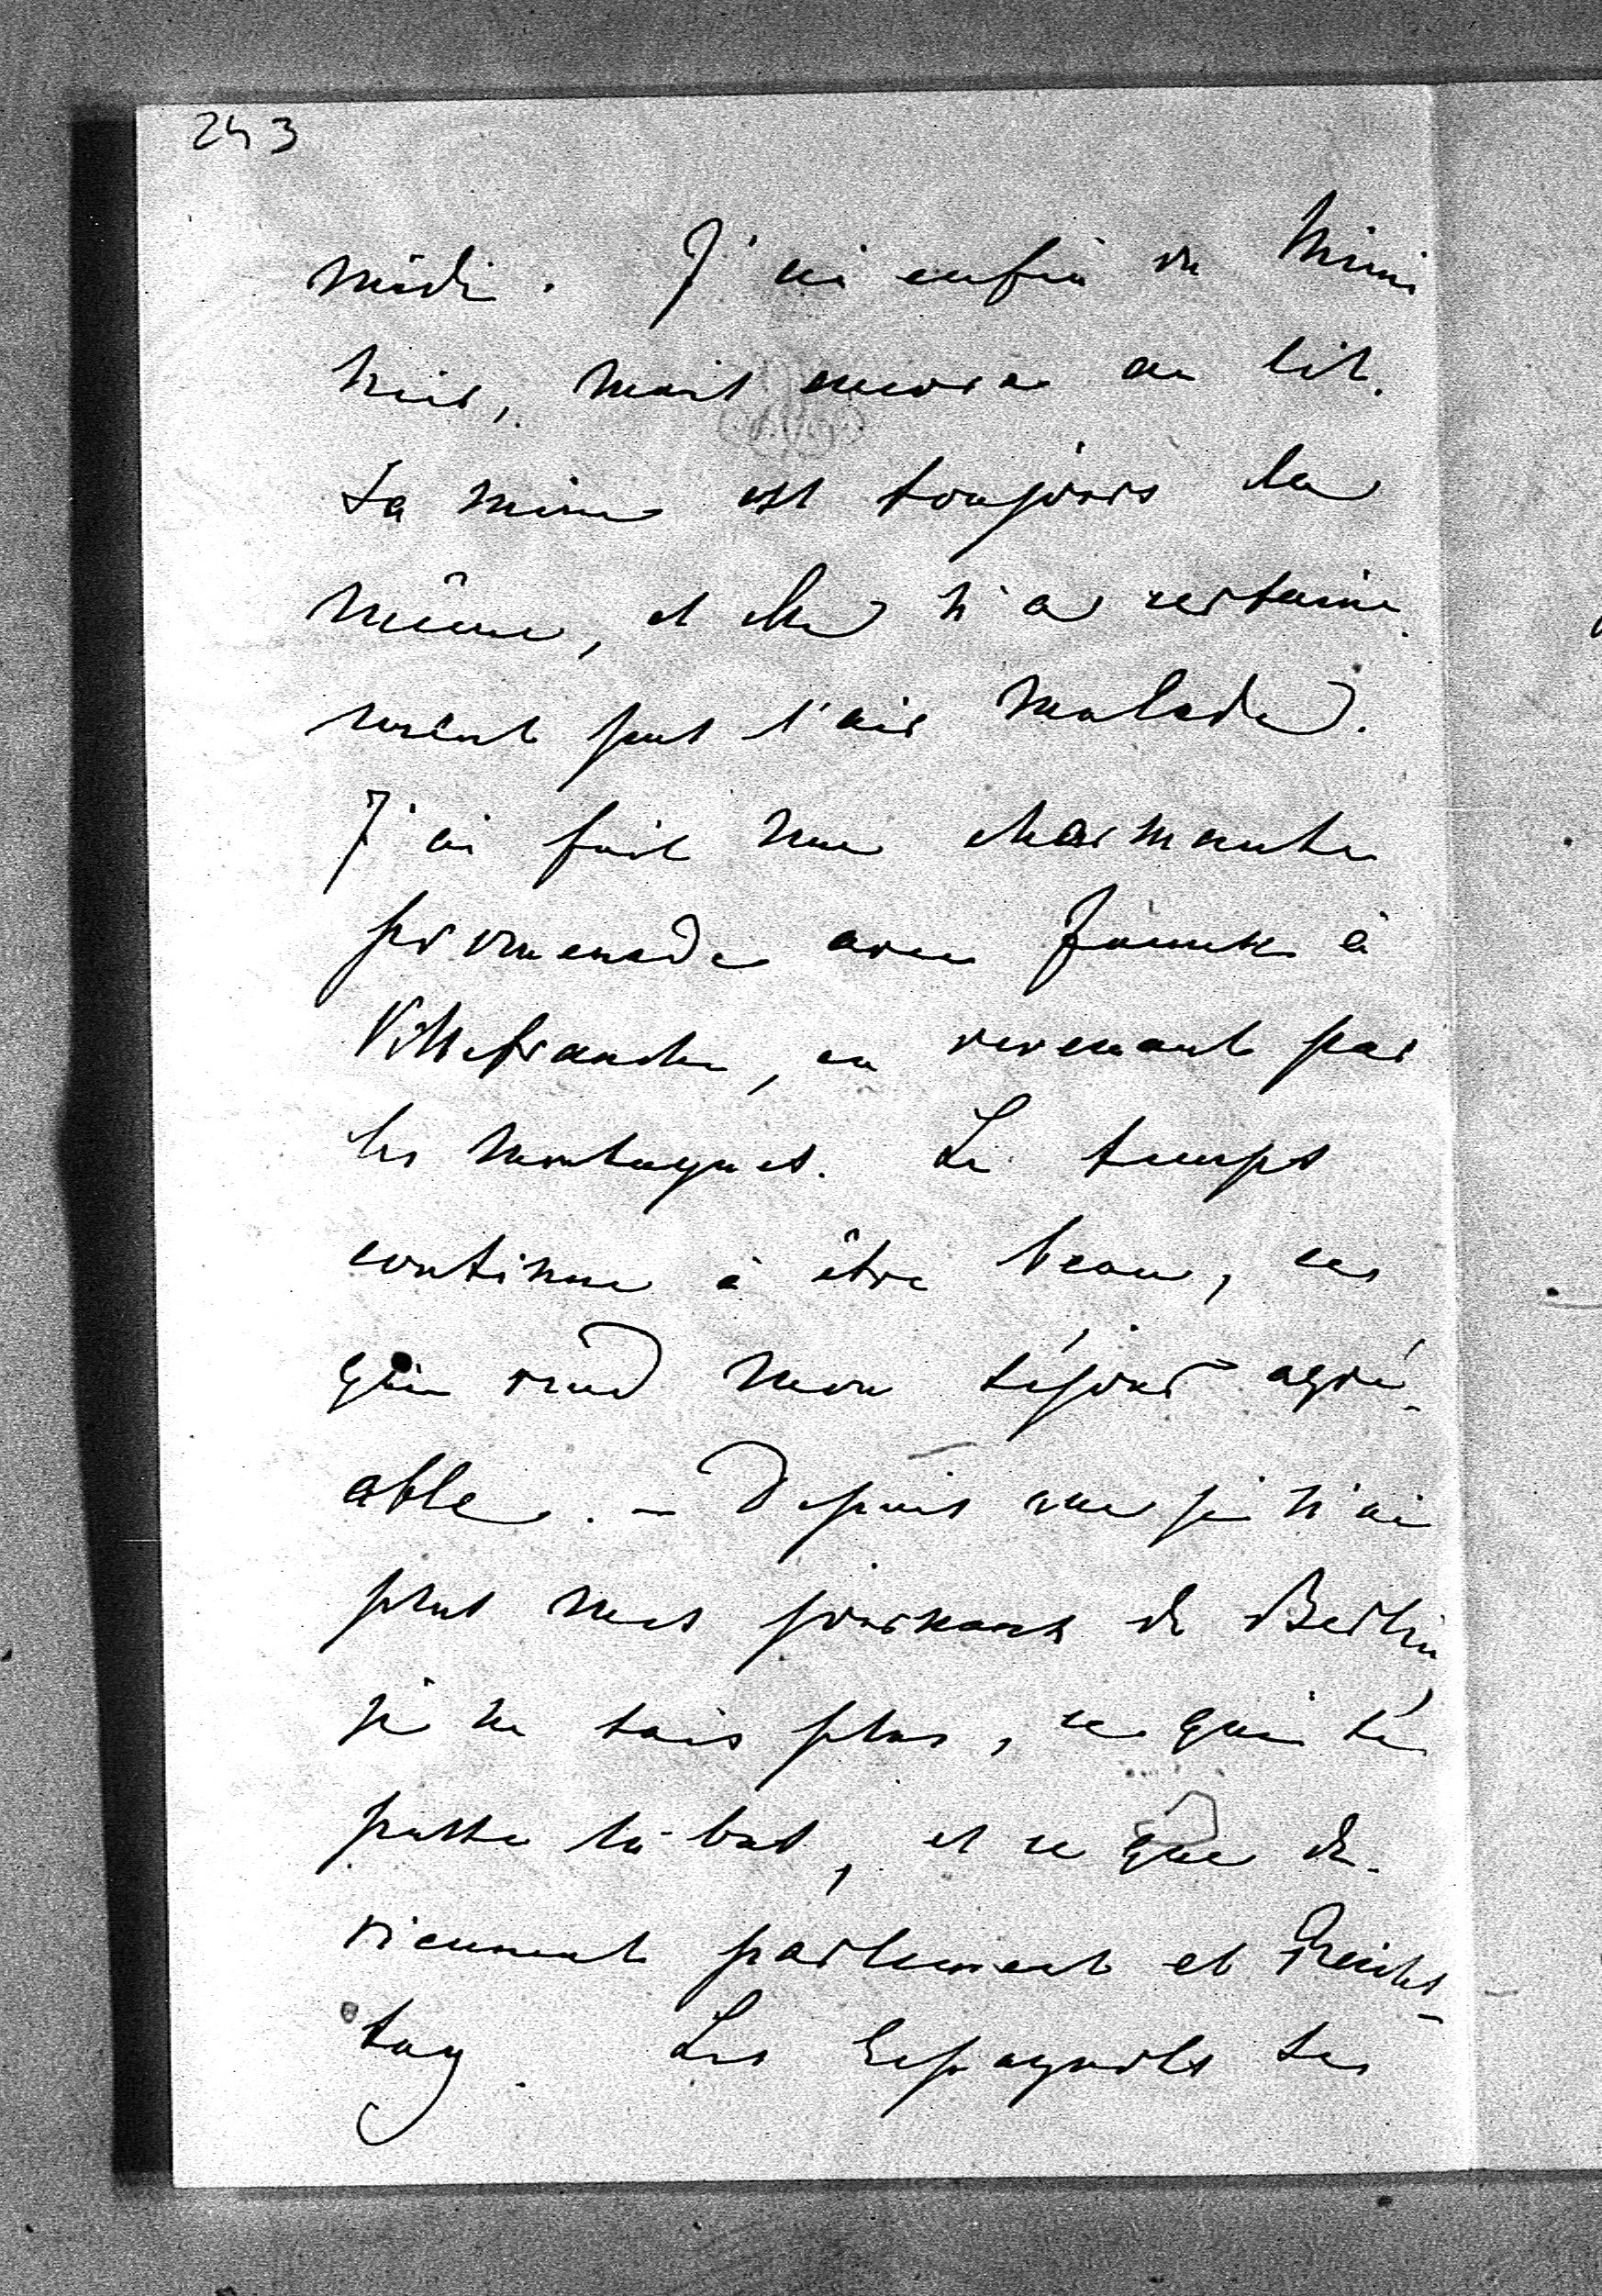 243
midi. J'ai enfin vu Mimi
hier, mais encore au lit.
Sa mine est toujours la
même, et elle n'a certaine-
ment pas l'air malade.
J'ai fait une charmante
promenade avec à
Villefranche, en revenant par
les montagnes. Le temps
continue à être beau, ce
qui rend mon séjour agré-
able. – Depuis que je n'ai
plus mes journaux de Berlin
je ne sais plus, ce qui se
passe là bas, et ce que de-
viennent parlement et Reichs-
tag. Les Espagnols se